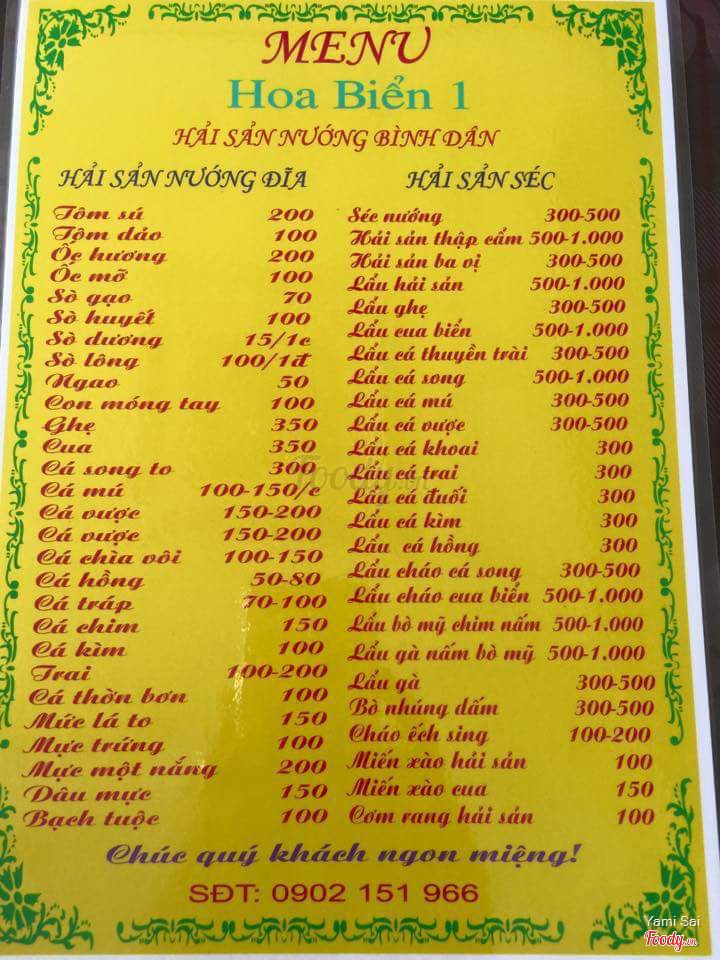 MENU
Hoa Biển 1
HẢI SẢN NƯỚNG BÌNH DÂN
HẢI SẢN NƯỚNG ĐĨA
Tôm sú 200
Tôm dảo 100
Ốc hương 200
Ốc mỡ 100
Sò gạo 70
Sò huyết 100
Sò dương 15/1c
Sò lông 100/1đ
Ngao 50
Con móng tay 100
Ghẹ 350
Cua 350
Cá song to 300
Cá mú 100-150/c
Cá vược 150-200
Cá vược 150-200
Cá chìa vôi 100-150
Cá hồng 50-80
Cá tráp 70-100
Cá chim 150
Cá kìm 100
Trai 100-200
Cá thờn bơn 100
Mức lá to 150
Mực trứng 100
Mực một nắng 200
Dâu mực 150
Bạch tuộc 100
HẢI SẢN SÉC
Séc nướng 300-500
Hải sản thập cẩm 500-1.000
Hải sản ba vị 300-500
Lẩu hải sản 500-1.000
Lẩu ghẹ 300-500
Lẩu cua biển 500-1.000
Lẩu cá thuyền trài 300-500
Lẩu cá song 500-1.000
Lẩu cá mú 300-500
Lẩu cá vược 300-500
Lẩu cá khoai 300
Lẩu cá trai 300
Lẩu cá đuối 300
Lẩu cá kìm 300
Lẩu cá hồng 300
Lẩu cháo cá song 300-500
Lẩu cháo cua biển 500-1.000
Lẩu bò mỹ chim nấm 500-1.000
Lẩu gà nấm bò mỹ 500-1.000
Lẩu gà 300-500
Bò nhúng dấm 300-500
Cháo ếch sing 100-200
Miến xào hải sản 100
Miến xào cua 150
Cơm rang hải sản 100
Foody.vn
Chúc quý khách ngon miệng!
SĐT: 0902 151 966
Yami Sai
Foody.vn